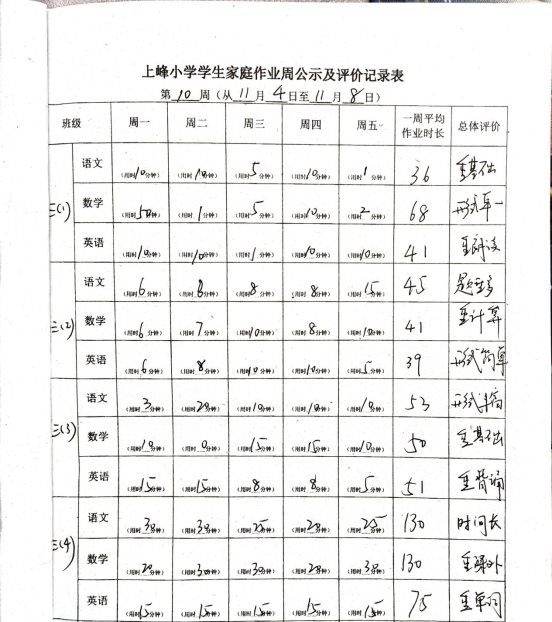 上峰小学学生家庭作业周公示及评价记录表
第 10 周（从 11 月 4 日至 11 月 8 日）
班级 周一 周二 周三 周四 周五 一周平均作业时长 总体评价
三(1) 语文 （用时10分钟） （用时10分钟） （用时5分钟） （用时10分钟） （用时1分钟） 36 重基础
数学 （用时50分钟） （用时1分钟） （用时5分钟） （用时10分钟） （用时2分钟） 68 形式单一
英语 （用时10分钟） （用时10分钟） （用时1分钟） （用时10分钟） （用时10分钟） 41 重朗读
三(2) 语文 （用时6分钟） （用时8分钟） （用时8分钟） （用时8分钟） （用时15分钟） 45
数学 （用时6分钟） （用时7分钟） （用时10分钟） （用时8分钟） （用时10分钟） 41 重计算
英语 （用时6分钟） （用时8分钟） （用时10分钟） （用时10分钟） （用时5分钟） 39 形式简单
三(3) 语文 （用时3分钟） （用时20分钟） （用时10分钟） （用时10分钟） （用时10分钟） 53 形式丰富
数学 （用时10分钟） （用时0分钟） （用时15分钟） （用时15分钟） （用时10分钟） 50 重基础
英语 （用时15分钟） （用时15分钟） （用时8分钟） （用时8分钟） （用时5分钟） 51 重背诵
三(4) 语文 （用时30分钟） （用时30分钟） （用时25分钟） （用时20分钟） （用时25分钟） 130 时间长
数学 （用时20分钟） （用时30分钟） （用时30分钟） （用时20分钟） （用时30分钟） 130 重课外
英语 （用时15分钟） （用时15分钟） （用时15分钟） （用时15分钟） （用时15分钟） 75 重单词